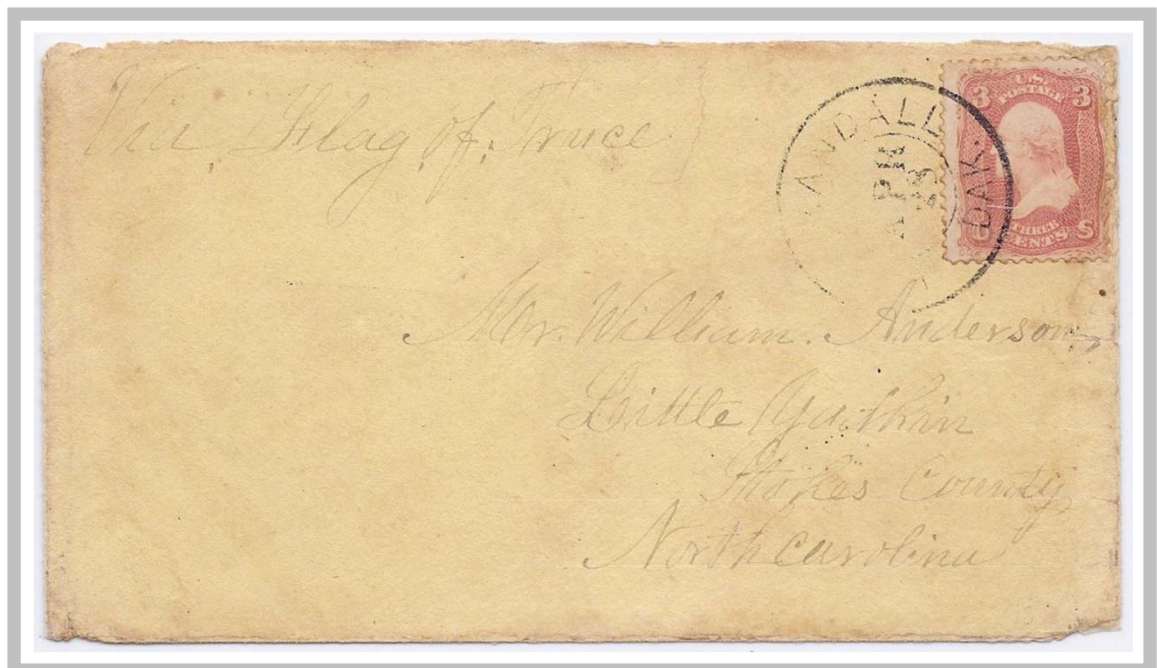 Via, Flag of, Truce
ANDALL
DAK.
APR
28
U.S.
POSTAGE
3 3
THREE
CENTS
Mr. William. Anderson,
Little Yadkin
Stokes County
North Carolina